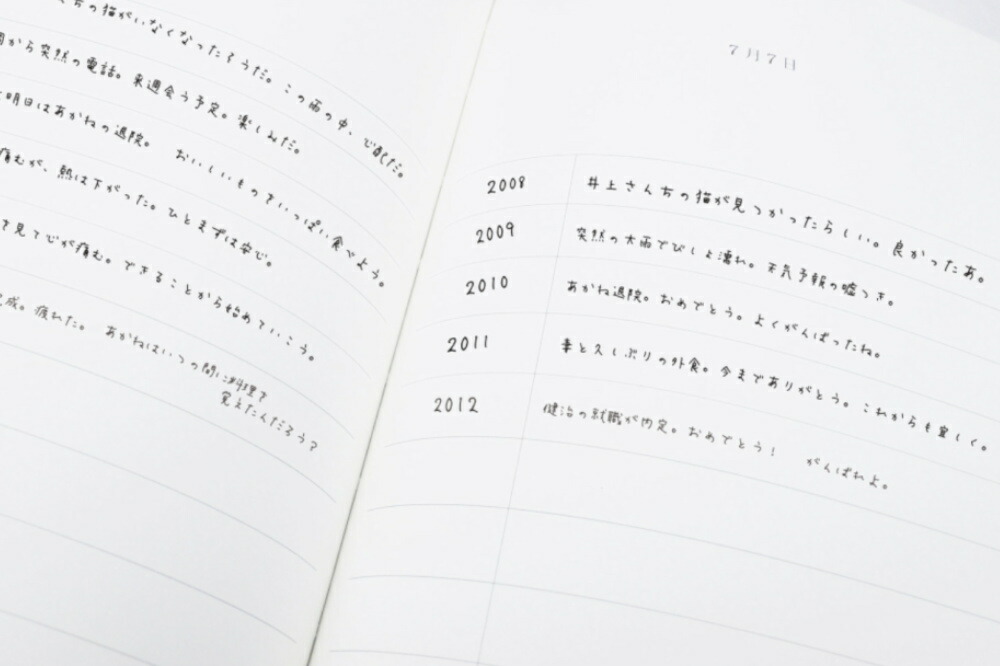 ちの猫がいなくなったそうだ。この雨の中、心配だ。
から突然の電話。来週会う予定。楽しみだ。
明日はあかねの退院。 おいしいものをいっぱい食べよう。
痛むが、熱は下がった。ひとまずは安心。
を見て心が痛む。できることから始めていこう。
成。疲れた。 あかねはいつの間に料理を
覚えたんだろう?
7月7日
2008 井上さんちの猫が見つかったらしい。良かったあ。
2009 突然の大雨でびしょ濡れ。天気予報の嘘つき。
2010 あかね退院。おめでとう。よくがんばったね。
2011 妻と久しぶりの外食。今までありがとう。これからも宜しく。
2012 健治の就職が内定。おめでとう! がんばれよ。